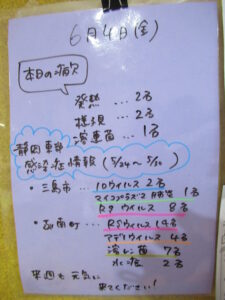 6月4日(金)
本日の病欠
発熱 ... 2名
様子見 ... 2名
溶連菌 ... 1名
静岡東部
感染症情報 (5/24〜5/30)
・三島市 ... ロタウイルス 2名
マイコプラズマ肺炎 1名
RSウイルス 8名
・函南町 ... RSウイルス 14名
アデノウイルス 4名
溶レン菌 7名
水痘 2名
来週も元気に
来てください!